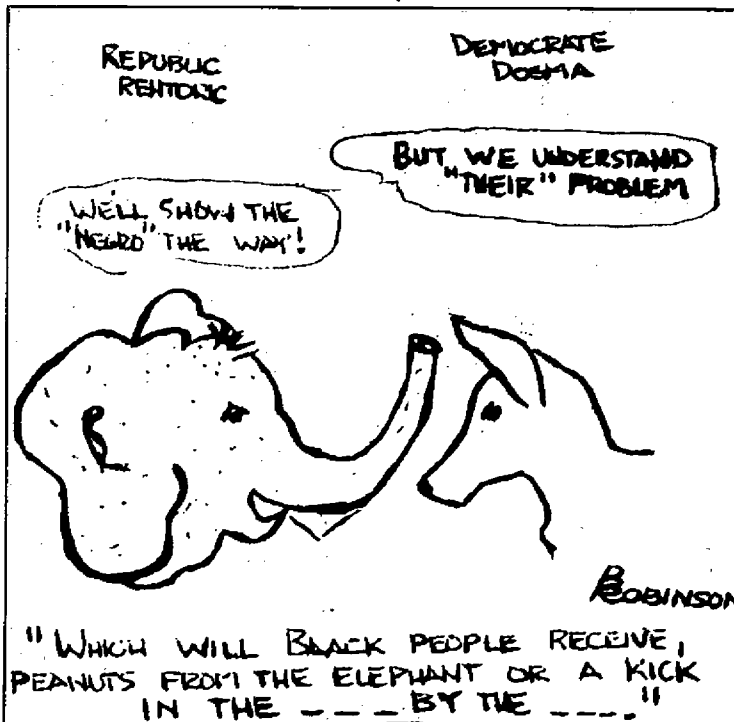 REPUBLIC
REHTORIC
DEMOCRATE
DOGMA
WE'LL SHOW THE
"NEGRO" THE WAY!
BUT WE UNDERSTAND
"THEIR" PROBLEM
ROBINSON
"WHICH WILL BLACK PEOPLE RECEIVE,
PEANUTS FROM THE ELEPHANT OR A KICK
IN THE _ _ _ BY THE _ _ _."